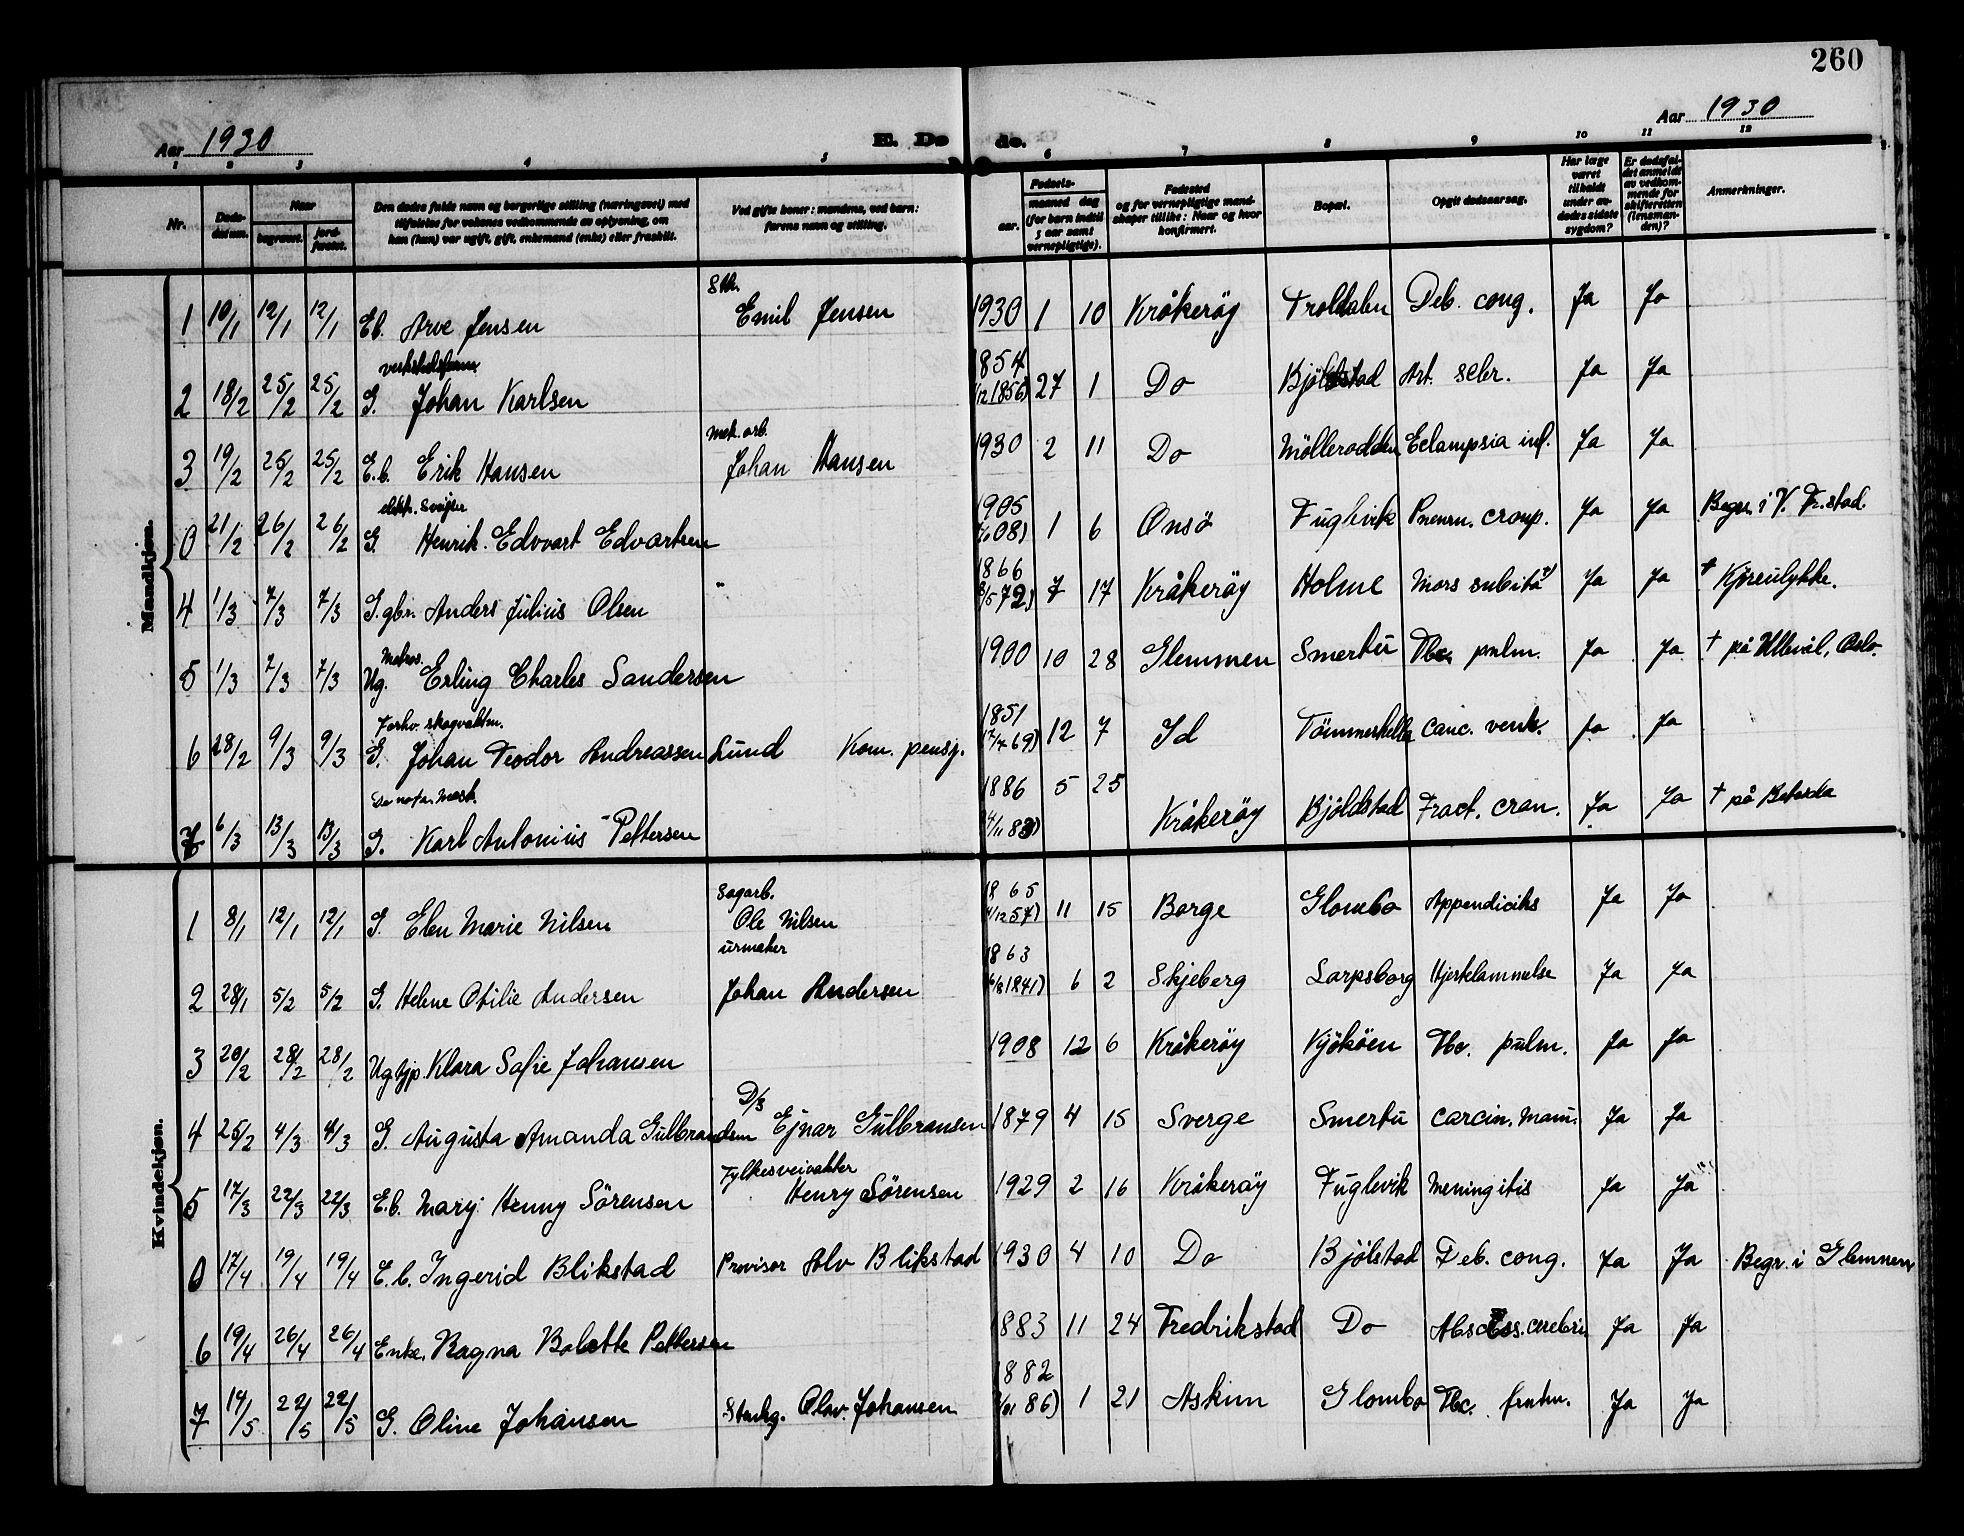 260
Aar 1930
E. Dø
de.
Aar 1930
1 2 3 4 5 6 7 8 9 10 11 12
Nr.
Døds-datum.
Naar
begravet.
jord-fæstet.
Den dødes fulde navn og borgerlige stilling (næringsvei) med tilføielse for voksnes vedkommende av oplysning, om han (hun) var ugift, gift, enkemand (enke) eller fraskilt.
Ved gifte koner: mandens, ved barn: farens navn og stilling.
Fødsels-
aar.
maaned dag
(for barn indtil 5 aar samt vernepligtige).
Fødested og for vernepligtige mandskaper tillike: Naar og hvor konfirmert.
Bopæl.
Opgit dødsaarsag.
Har læge været tilkaldt under avdødes sidste sygdom?
Er dødsfaldet anmeldt av vedkommende for skifteretten (lensmanden)?
Anmerkninger.
Mandkjøn.
1 10/1 12/1 12/1 Eb. Arve Jensen Emil Jensen 1930 1 10 Kråkerøy Troldalen Deb. cong. Ja Ja
2 18/2 25/2 25/2 G. Johan Karlsen 1854 /12 1856) 27 1 Do Bjölstad Art. sclr. Ja Ja
3 19/2 25/2 25/2 E.b. Erik Hansen Mek. arb. Johan Hansen 1930 2 11 Do Möllerodden Eclampsia inf. Ja Ja
0 21/2 26/2 26/2 elektr. Sveiser G. Henrik Edvart Edvartsen 1905 08) 1 6 Onsö Fuglevik Pneum. croup. Ja Ja Begr. i V. Fr.stad.
4 1/3 7/3 7/3 G. gbr. Anders Julius Olsen 1866 72) 7 17 Kråkerøy Holme Mors subita +) Ja Ja + Kjøreulykke.
5 1/3 7/3 7/3 Matros Ug. Erling Charles Sandersen 1900 10 28 Glemmen Smertu Tbc. pulm. Ja Ja + på Ullevål, Oslo.
6 28/2 9/3 9/3 Forhv. skogvakter. G. Johan Teodor Andreassen Lund Kom. pensj. 1851 69) 12 7 Id Tömmerhella Canc. ventr. Ja Ja
7 6/3 13/3 13/3 G. Karl Antonius Pettersen 1886 /11 83) 5 25 Kråkerøy Bjölstad Fract. cran. Ja Ja + på Betesda
Kvindekjøn.
1 8/1 12/1 12/1 G. Elen Marie Nilsen Sagarb. Ole Nilsen 1865 /12 57) 11 15 Borge Glombo Appendicitis Ja Ja
2 28/1 5/2 5/2 G. Helene Otilie Andersen urmaker Johan Andersen 1863 1841) 6 2 Skjeberg Sarpsborg Hjertelammelse Ja Ja
3 20/2 28/2 28/2 Ug. tjp. Klara Sofie Johansen 1908 12 6 Kråkerøy Kjøköen Tbc. pulm. Ja Ja
4 25/2 4/3 4/3 G. Augusta Amanda Gulbrandsen D/3 Ejnar Gulbransen 1879 4 15 Sverge Smertu Carcin. Mam. Ja Ja
5 17/3 22/3 22/3 E.b. Mary Henny Sörensen Fylkesveivokter Henry Sörensen 1929 2 16 Kråkerøy Fuglevik Meningitis Ja Ja
0 17/4 19/4 19/4 E.b. Ingerid Blikstad Provisor Alv Blikstad 1930 4 10 Do Bjölstad Deb. cong. Ja Ja Begr. i Glemmen
6 19/4 26/4 26/4 Enke. Ragna Bolette Pettersen 1883 11 24 Fredrikstad Do Abscess. cerebri Ja Ja
7 14/5 22/5 22/5 G. Oline Johansen Stenhg. Olav Johansen 1882 86) 1 21 Askim Glombo Tbc. pulm. Ja Ja